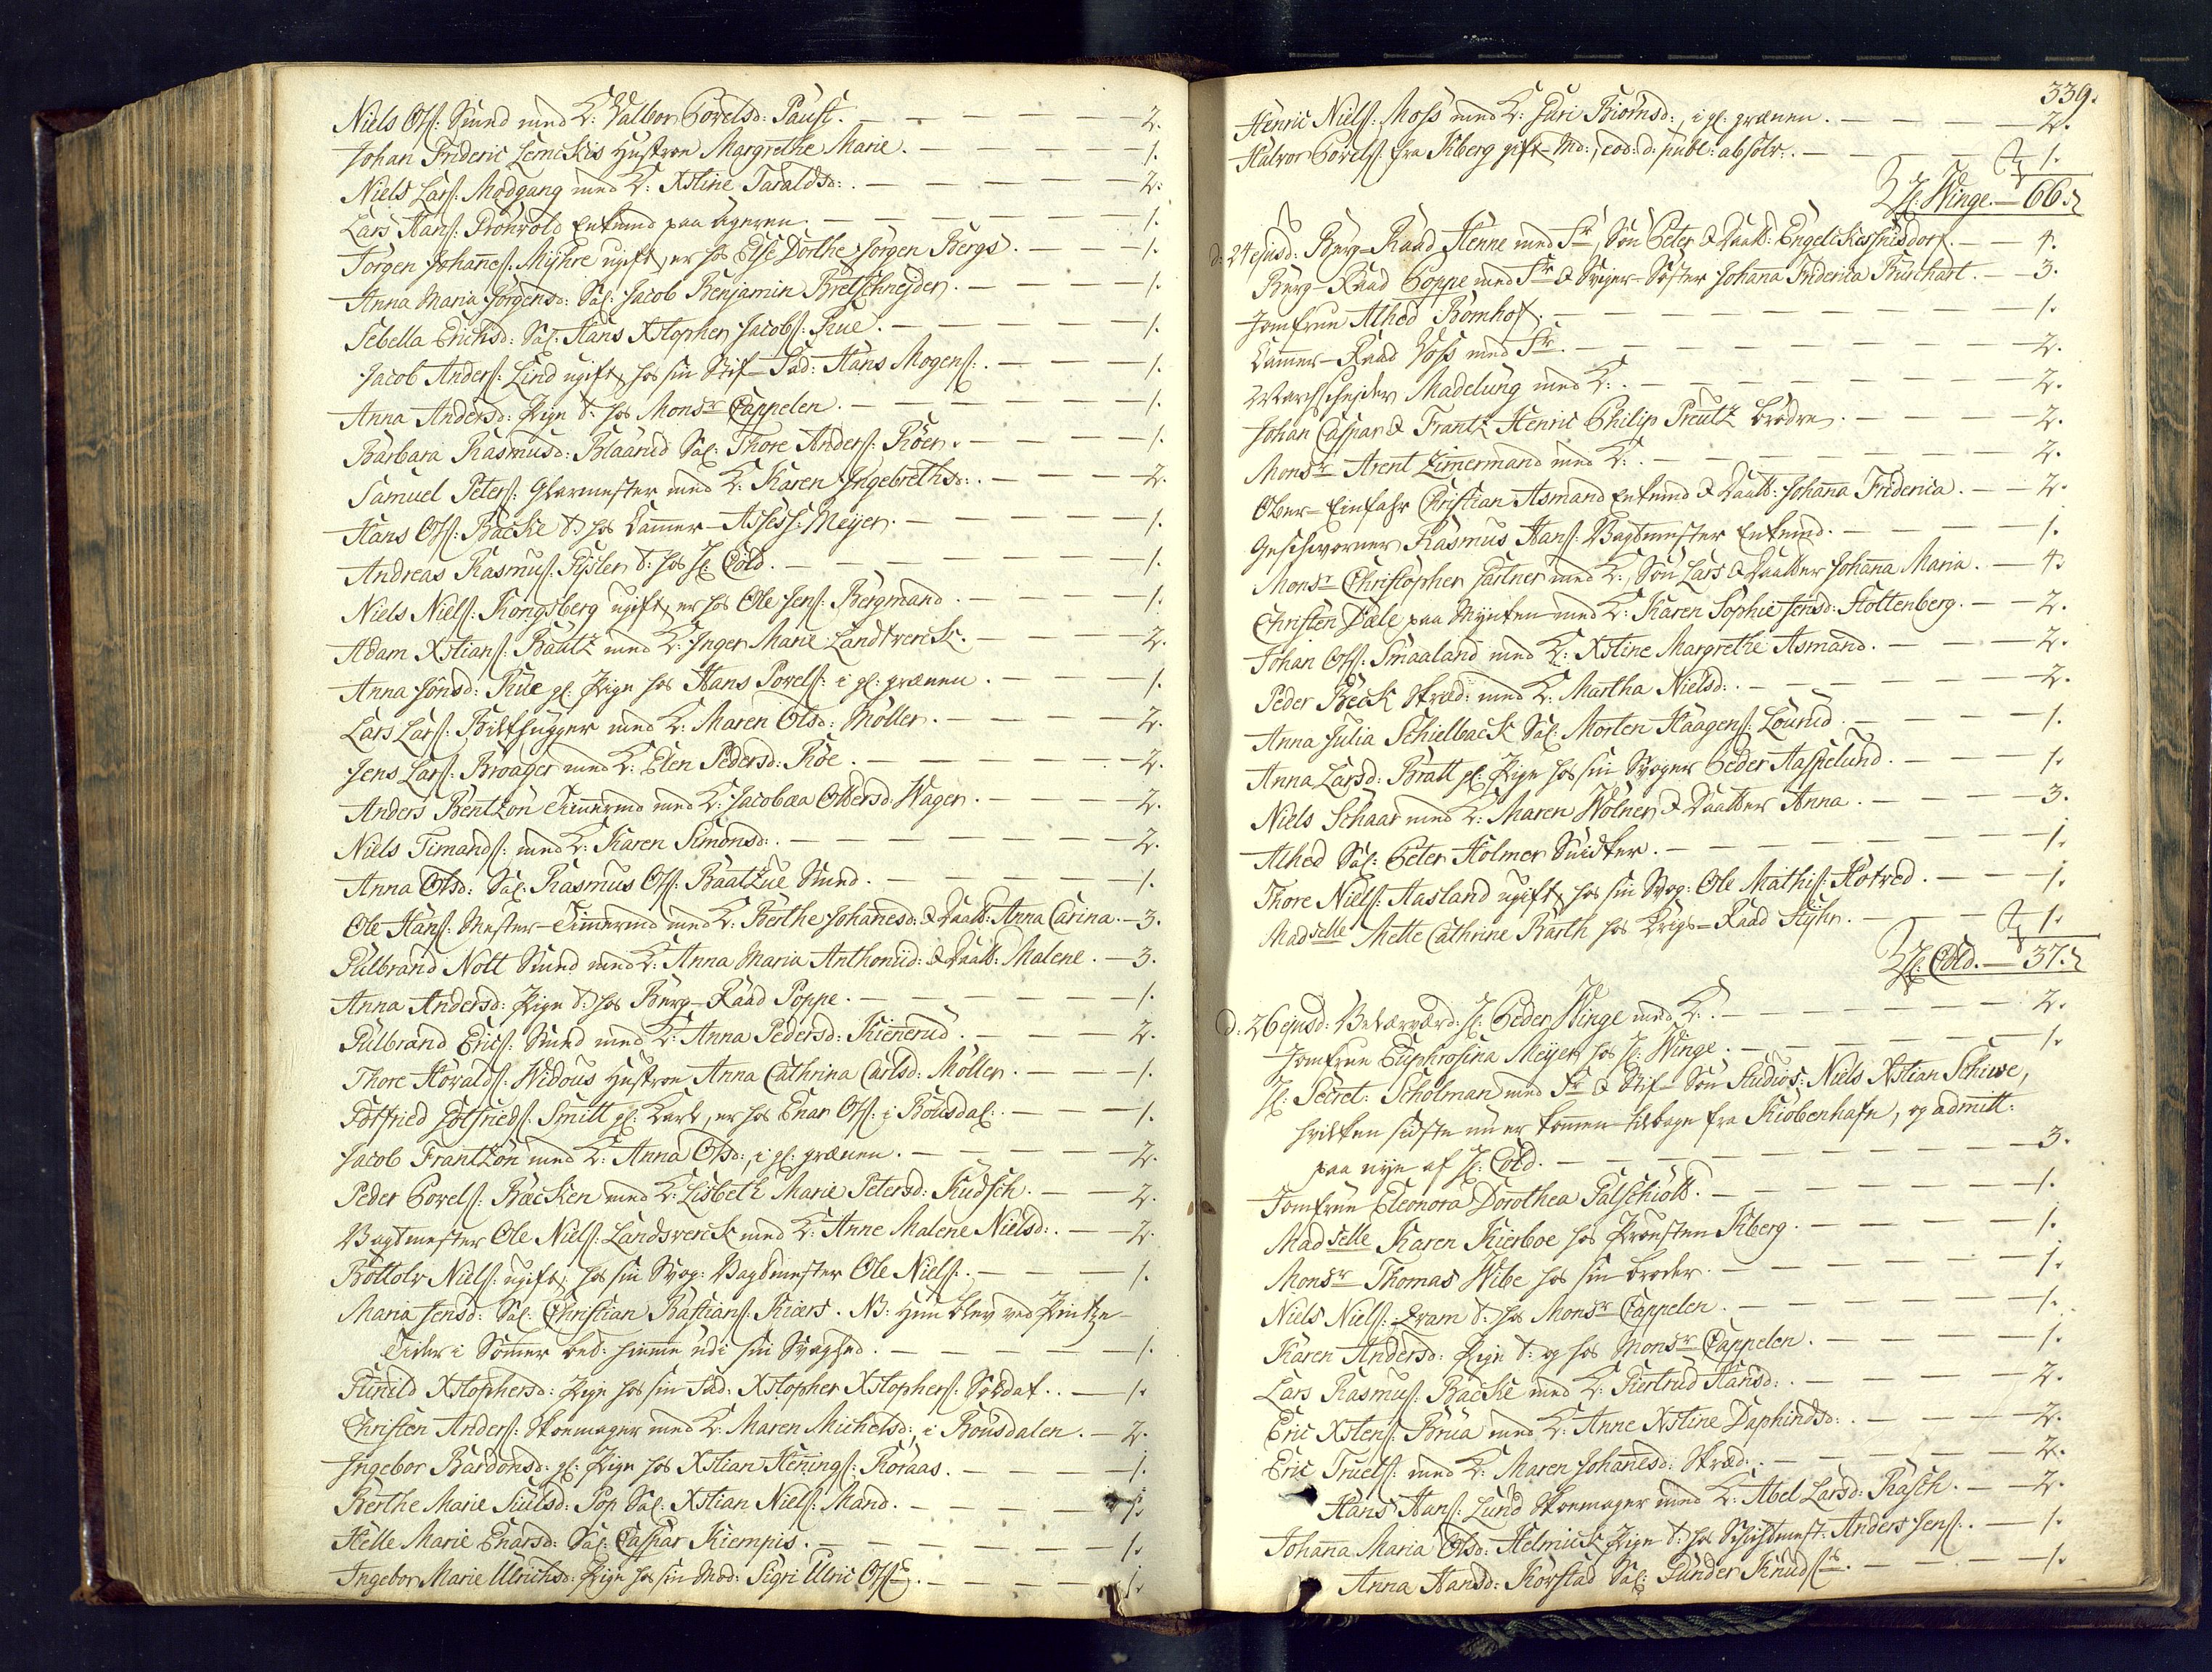 Niels Ols: Smed med K: Valbor Povelsd: Paust. — 2.
Johan Frideric Lemckis Hustrue Margrethe Marie. — 1.
Niels Lars: Modgang med K: Xstine Taraldsd:. — 2.
Lars Hans: Prönvold Enkemd paa Ageren. — 1.
Jörgen Johannes: Myhre ugift, er hos Else Dorthe Jörgen Bergs. — 1.
Anna Maria Jörgensd: Sal: Jacob Benjamin Bretschneider. — 1.
Sebella Erichsd: Sal: Hans Xstopher Jacobs: Rue. — 1.
Jacob Anders: Lind ugift, hos sin Stif-Fad: Hans Mogens:. — 1.
Anna Andersd: Pige t: hos Monsr Cappelen. — 1.
Barbara Rasmusd: Blaarud Sal: Thore Anders: Röen. — 1.
Samuel Peters: Glarmester med K: Karen Ingebrethsd:. — 2.
Hans Ols: Backe t: hos Cammer-Assess: Meyer. — 1.
Andreas Rasmus: Fysler t: hos H: Cold. — 1.
Niels Niels: Kongsberg ugift, er hos Ole Jens: Bergmand. — 1.
Adam Xstians: Bautz med K: Inger Marie Landtverck. — 2.
Anna Jönsd: Rue gl: Pige hos Hans Povels: i gl: grænen. — 1.
Lars Lars: Bilthugger med K: Maren Olsd: Möller. — 2.
Jens Lars: Broager med K: Elen Pedersd: Röe. — 2.
Anders Bentzon Timermd med K: Jacobæa Olversd: Wager. — 2.
Niels Timands: med K: Karen Simonsd:. — 2.
Anna Olsd: Sal: Rasmus Ols: Baatzue Smed. — 1.
Ole Hans: Mester-Timermd med K: Berthe Johanesd: & Daatt: Anna Carina. — 3.
Gulbrand Nolt Smed med K: Anna Maria Anthoniid: & Daatt: Malene. — 3.
Anna Andersd: Pige t: hos Berg-Raad Poppe. — 1.
Gulbrand Erics: Smed med K: Anna Pedersd: Kiennerud. — 2.
Thore Hovalds: Widous Hustrue Anna Cathrina Carlsd: Möller. — 1.
Gotfried Gotfrieds: Smitt gl: Karl, er hos Enar Ols: i Bousdal:. — 1.
Jacob Frantzön med K: Anna Olsd:, i gl: grænen. — 2.
Peder Povels: Backen med K: Lisbeth Marie Petersd: Kudsch. — 2.
Vagtmester Ole Niels: Landsverck med K: Anne Malene Nielsd:. — 2.
Bottolv Niels: ugift, hos sin Svog: Vagtmester Ole Niels:. — 1.
Maria Jensd: Sal: Christian Bastians: Kiærs. NB: Hun blev ved Pintze-
Tider i Sommer bet: hiemme udi sin Svaghed. — 1.
Gunild Xstophersd: Pige hos sin Fad: Xstopher Xstophers: Soldat. — 1.
Christen Anders: Skoemager med K: Maren Michelsd:, i Bousdalen. — 2.
Ingebor Bardonsd: gl: Pige hos Xstian Henings: Roraas. — 1.
Berthe Marie Siulsd: Pop Sal: Xstian Niels: Mand. — 1.
Helle Marie Enarsd: Sal: Caspar Kiempis. — 1.
Ingebor Marie Ulrichsd: Pige hos sin Mod: Sigri Ulric Ols:. — 1.
339.
Henric Niels: Moss med K: Guri Biörnsd:, i gl: grænen. — 2.
Halvor Povels: fra Kberg gift Md:, eod: d: publ: absolv:. — 1.
H: Winge. — 66.
d: 24 ejusd: Berg-Raad Henne med Fr, Sön Peter & Daatt: Engelckes — 4.
Berg-Raad Poppe med Fr & Sviger-Söster Johanna Friderica Burchart. — 3.
Jomfrue Alhed Bornhof. — 1.
Cammer-Raad Voss med Fr. — 2.
Marchscheider Madelung med K:. — 2.
Johan Caspar & Frantz Henric Philip Preutz brödre. — 2.
Monsr Arent Zimermand med K:. — 2.
Ober-Einfahr Christian Asmand Enkemd & Daatt: Johanna Friderica. — 2.
Geschworner Rasmus Hans: Vagtmester Enkemd. — 1.
Monsr Christopher Gartner med K:, Sön Lars & Daatter Johanna Maria. — 4.
Christen Dæle paa Mynten med K: Karen Sophie Jensd: Stoltenberg. — 2.
Johan Ols: Smaaland med K: Xstine Margrethe Asmand. — 2.
Peder Beck Skræd: med K: Martha Nielsd:. — 2.
Anna Julia Schielback Sal: Morten Haagens: Lourud. — 1.
Anna Larsd: Bratt gl: Pige hos sin Svoger Peder Haspelund. — 1.
Niels Schaar med K: Maren Wolner & Daatter Anna. — 3.
Alhed Sal: Peter Holmer Snidker. — 1.
Thore Niels: Aasland ugift, hos sin Svog: Ole Mathis: Hotved. — 1.
Madselle Mette Cathrine Barth hos Krigs-Raad Styhr. — 1.
H: Cold. — 37.
d: 26 ejusd: Velærværd: H: Peder Winge med K:. — 2.
Jomfrue Euphrosina Meyer hos H: Winge. — 1.
H: Secret: Scholman med Fr & Stif-Sön Studios: Niels Xstian Schiwe,
hvilken sidste nu er kommen tilbage fra Kiöbenhafn, og admitt:
paa nye af H: Cold. — 3.
Jomfrue Eleonora Dorothea Palschiött. — 1.
Madselle Karen Kierboe hos Provsten Kberg. — 1.
Monsr Thomas Wibe hos sin broder. — 1.
Niels Niels: Fram t: hos Monsr Cappelen. — 1.
Karen Andersd: Pige t: og hos Monsr Cappelen. — 1.
Lars Rasmus: Backe med K: Gertrud Hansd:. — 2.
Eric Xstens: Brua med K: Anne Xstine Daphindsd:. — 2.
Eric Truels: med K: Maren Johanesd: Skræd:. — 2.
Hans Hans: Lund Skoemager med K: Abel Larsd: Rasch. — 2.
Johanna Maria Olsd: Helmick Pige t: hos Schichtmest: Anders Jens:. — 1.
Anna Hansd: Korstad Sal: Gunder Knuds:. — 1.